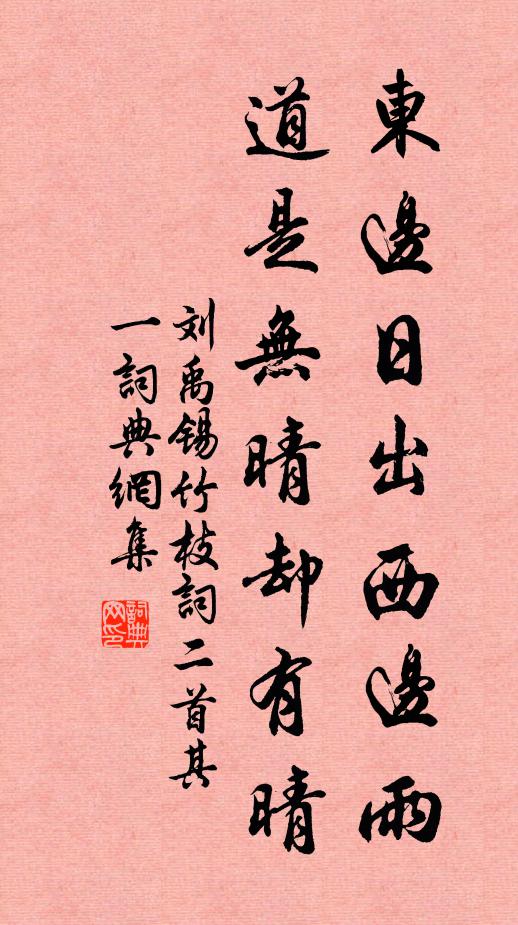 東邊日出西邊雨
道是無晴却有晴
刘禹锡竹枝詞二首其
一詞典網集
詞典网印